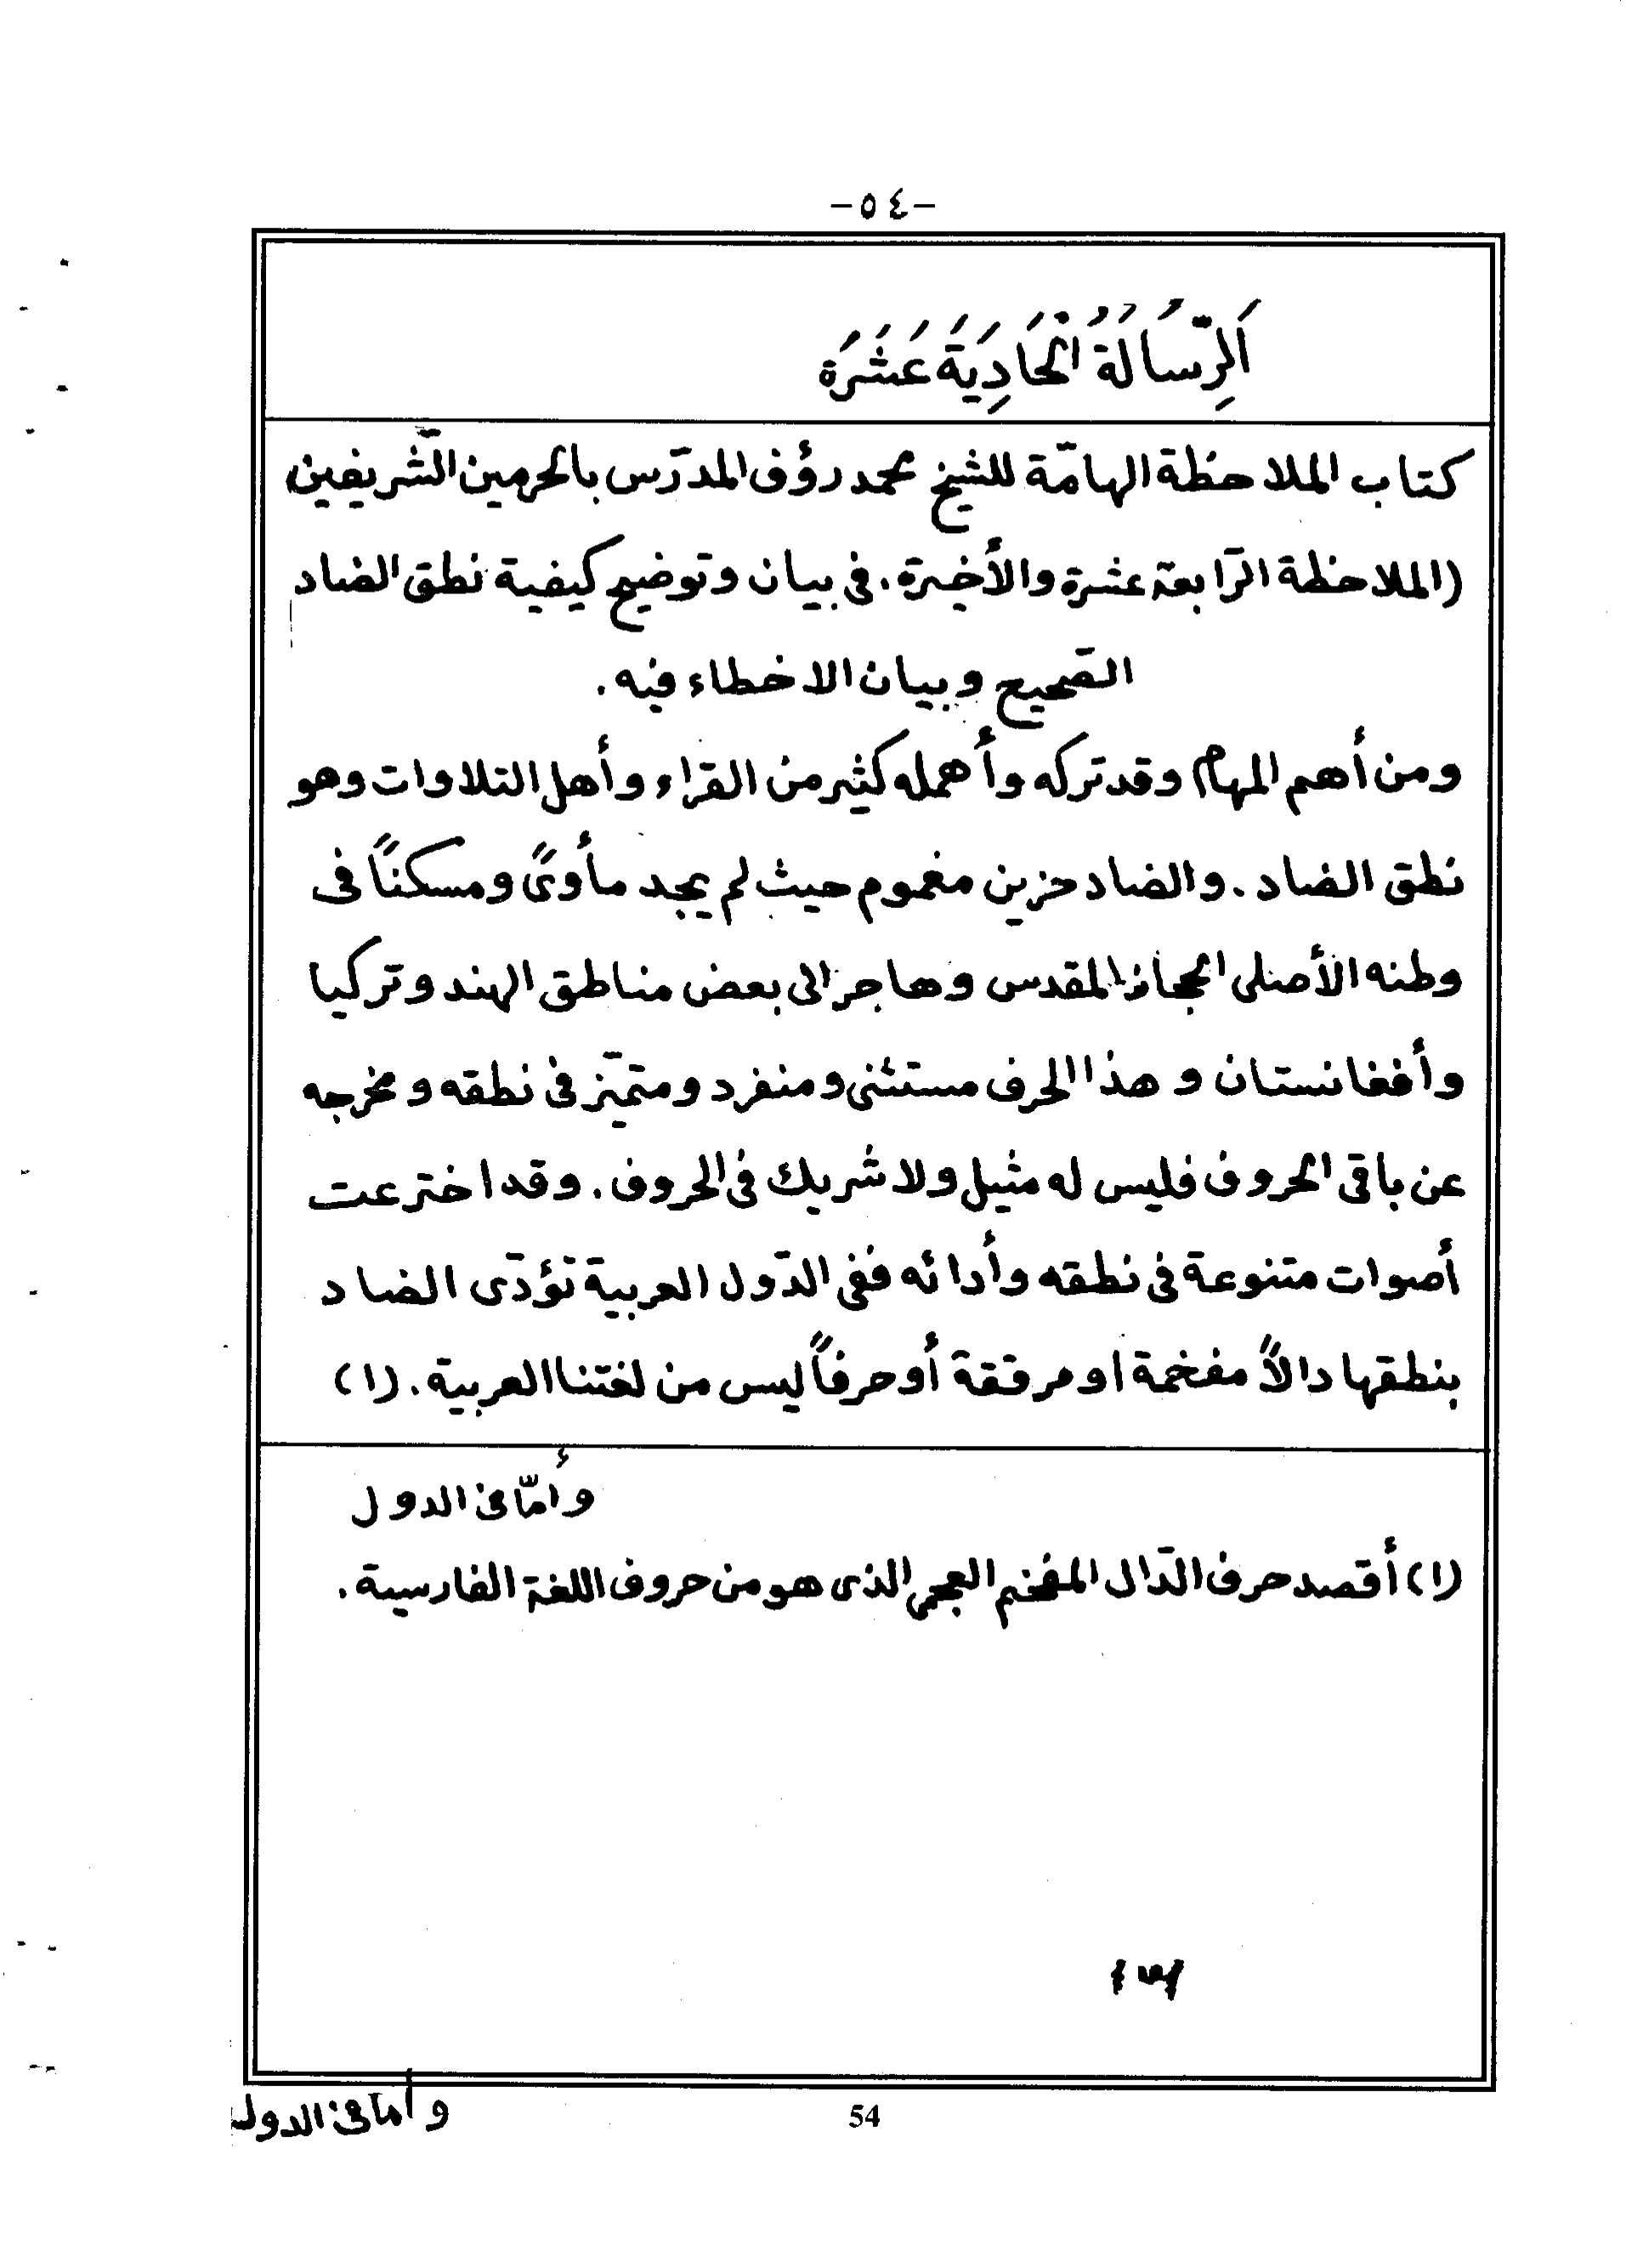 -٥٤-
اَلرِّسَالَةُ الْحَادِيَةَ عَشَرَة
كتاب الملاحظة الهامّة للشيخ محمد رؤف المدرّس بالحرمين الشّريفين
(الملاحظة الرّابعة عشرة والأخيرة. فى بيان وتوضيح كيفية نطق الضاد
الصّحيح وبيان الاخطاء فيه.
ومن أهم المهام وقد تركه وأهمله كثير من القراء وأهل التلاوات وهو
نطق الضاد. والضاد حزين مغموم حيث لم يجد مأوىً ومسكناً فى
وطنه الأصلى الحجاز المقدس وهاجر الى بعض مناطق الهند وتركيا
وأفغانستان و هذا الحرف مستثنى ومنفرد ومتميّز فى نطقه ومخرجه
عن باقى الحروف فليس له مثيل ولا شريك فى الحروف. وقد اخترعت
أصوات متنوعة فى نطقه وأدائه ففى الدّول العربية تؤدّى الضاد
بنطقها دالاً مفخمة او مرققة أو حرفاً ليس من لغتنا العربية. (١)
وأمّا فى الدول
(١) أقصد حرف الدّال المفخم العجمى الذى هو من حروف اللغة الفارسية.
وأما فى الدول
54